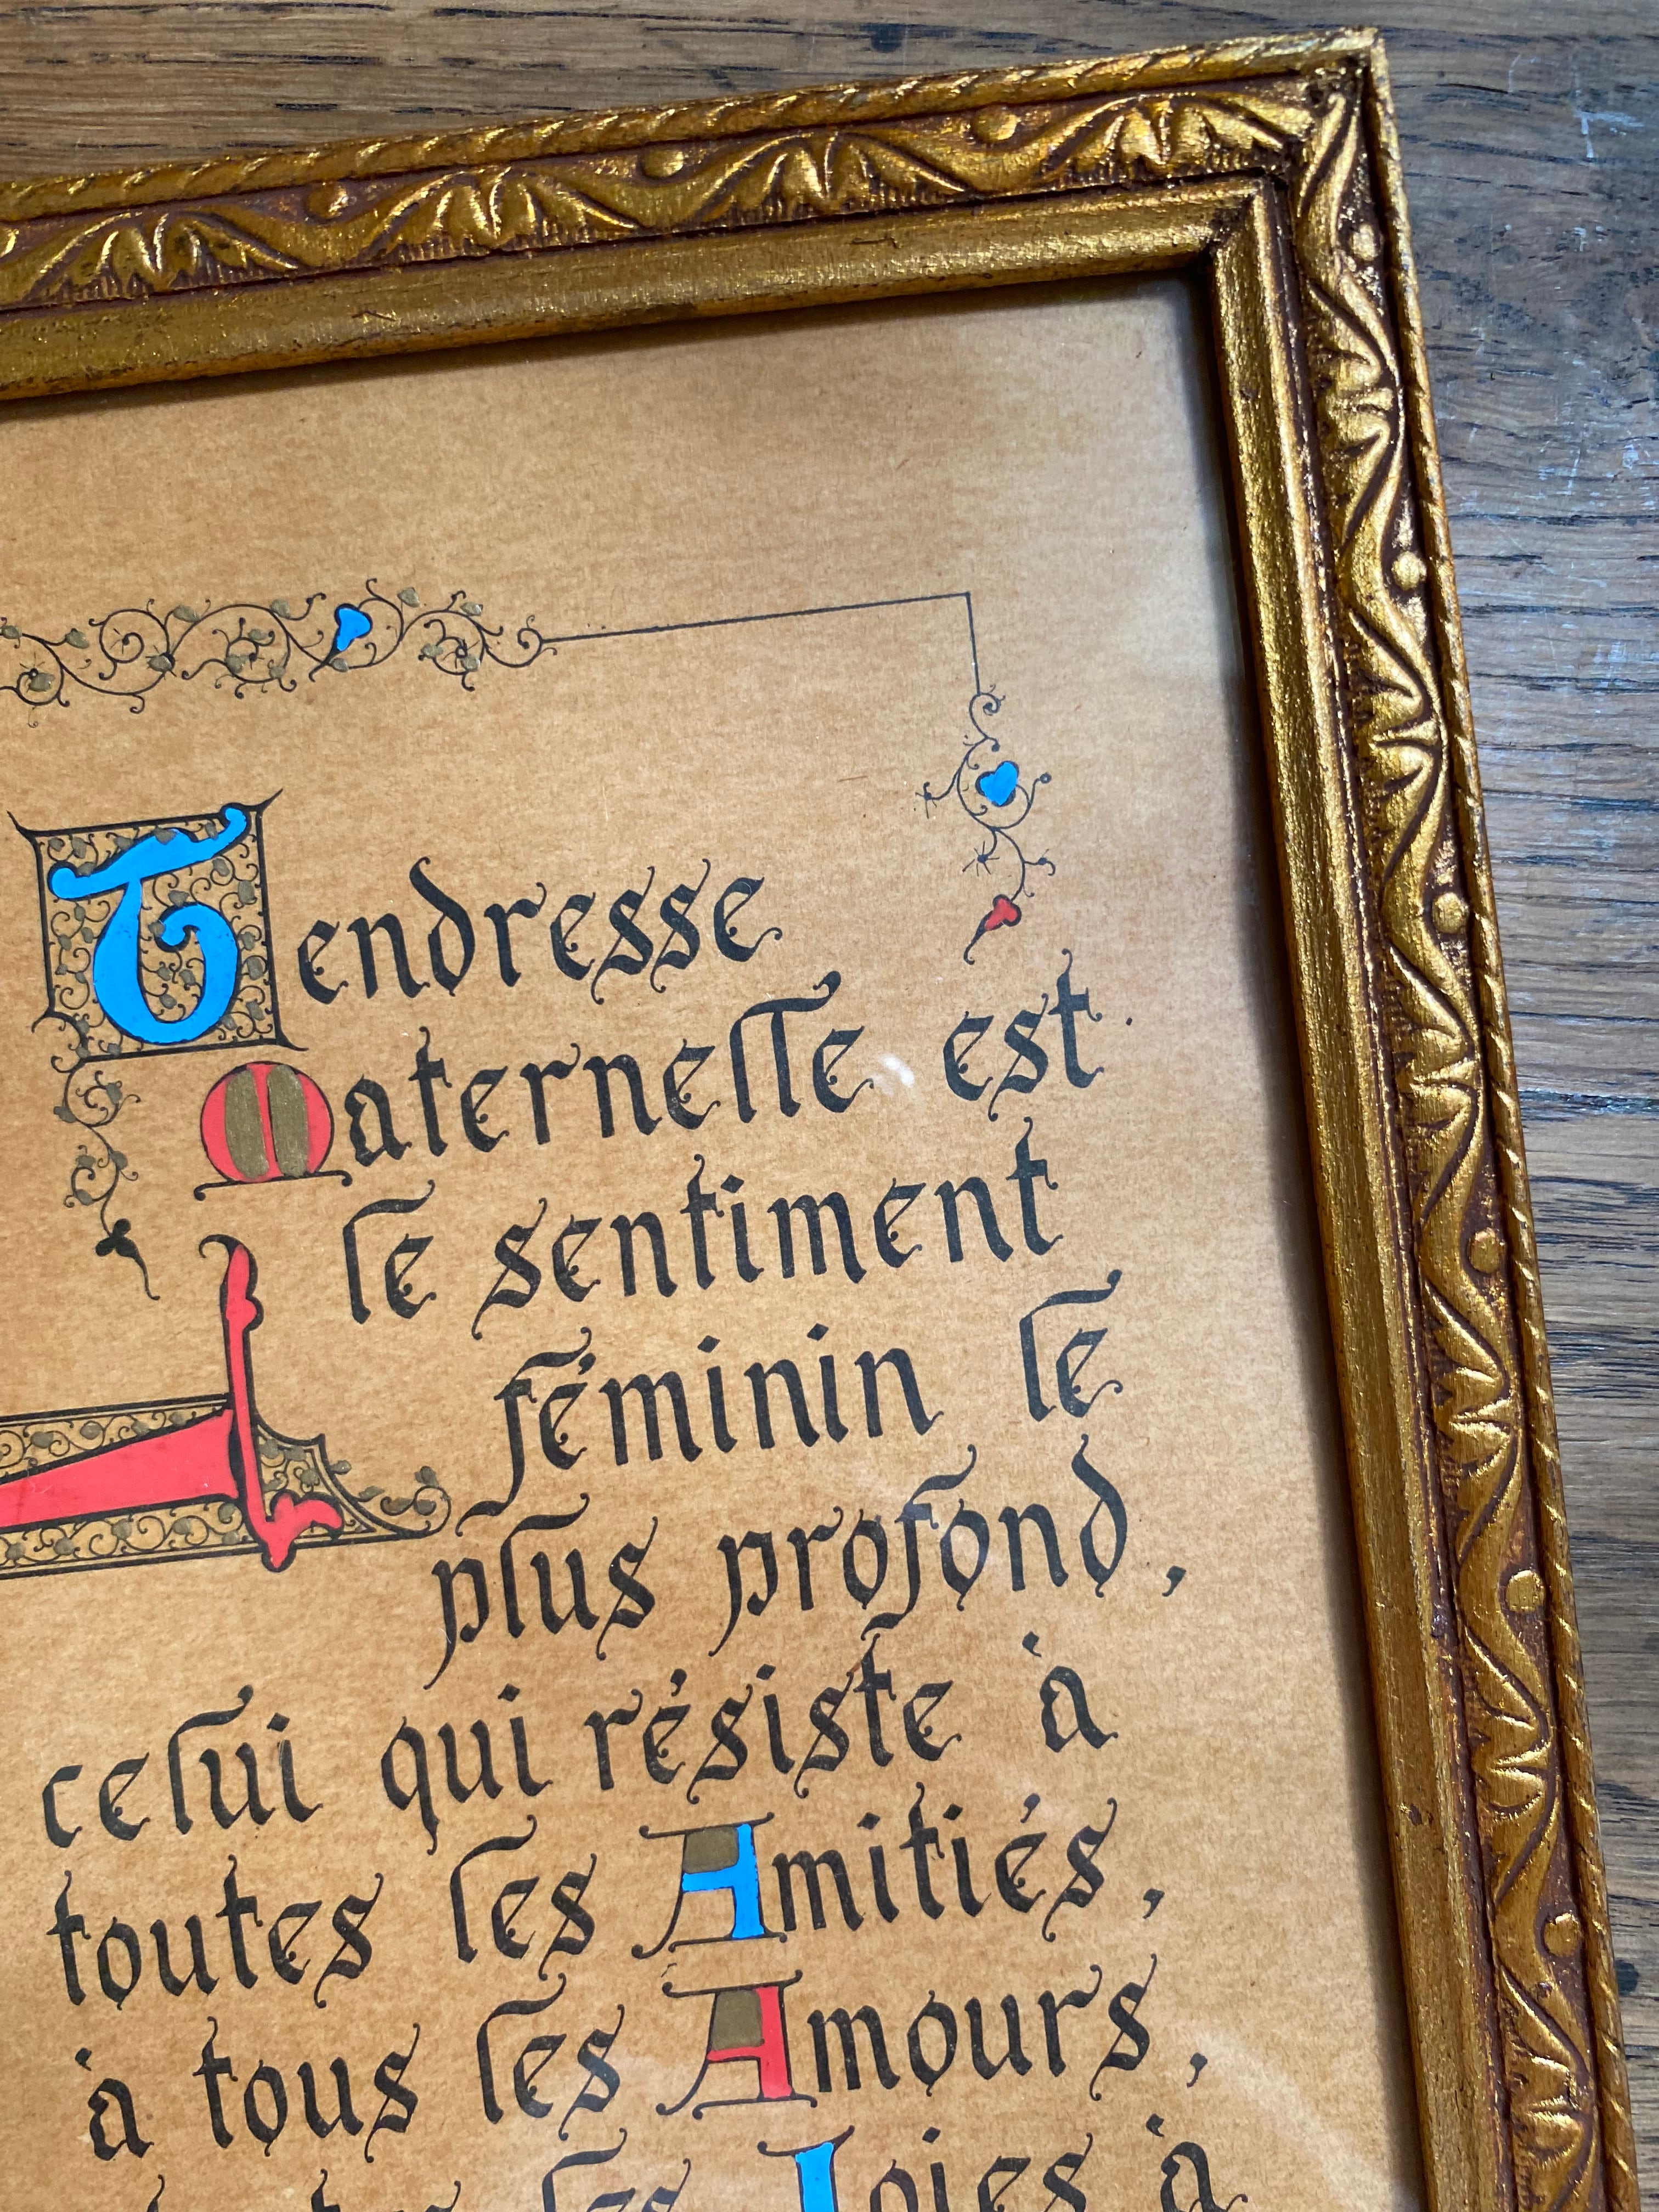 Tendresse
Maternelle est
le sentiment
féminin le
plus profond,
celui qui résiste à
toutes les Amitiés,
à tous les Amours,
les Joies à